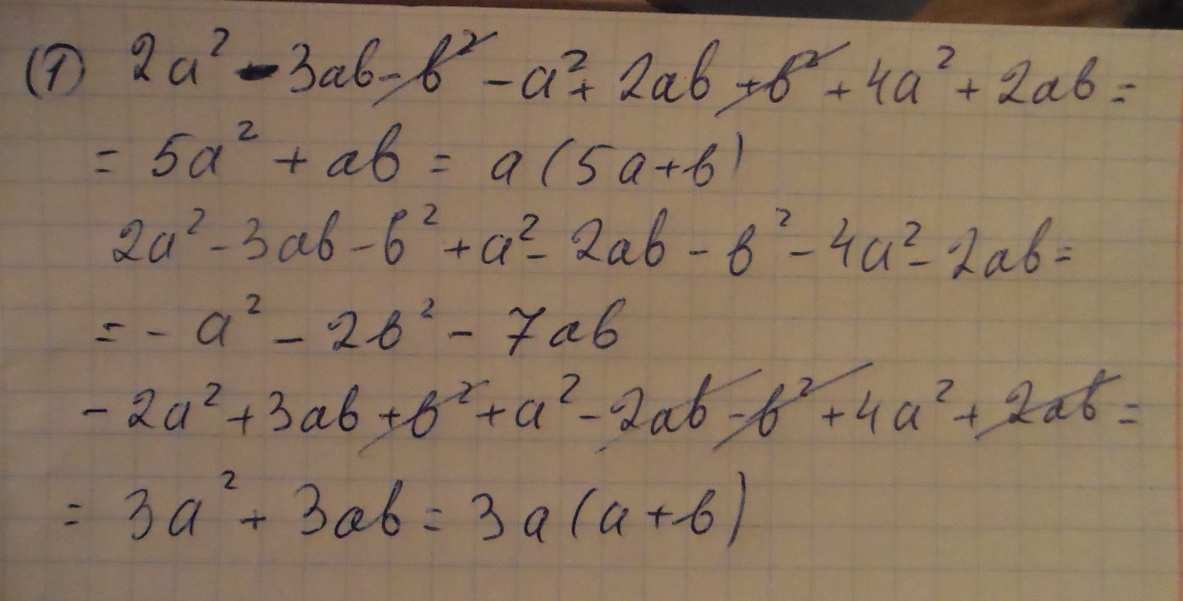 (1) 2a² - 3ab - b² - a² + 2ab + b² + 4a² + 2ab =
= 5a² + ab = a(5a+b)
2a² - 3ab - b² + a² - 2ab - b² - 4a² - 2ab =
= - a² - 2b² - 7ab
- 2a² + 3ab + b² + a² - 2ab - b² + 4a² + 2ab =
= 3a² + 3ab = 3a(a+b)